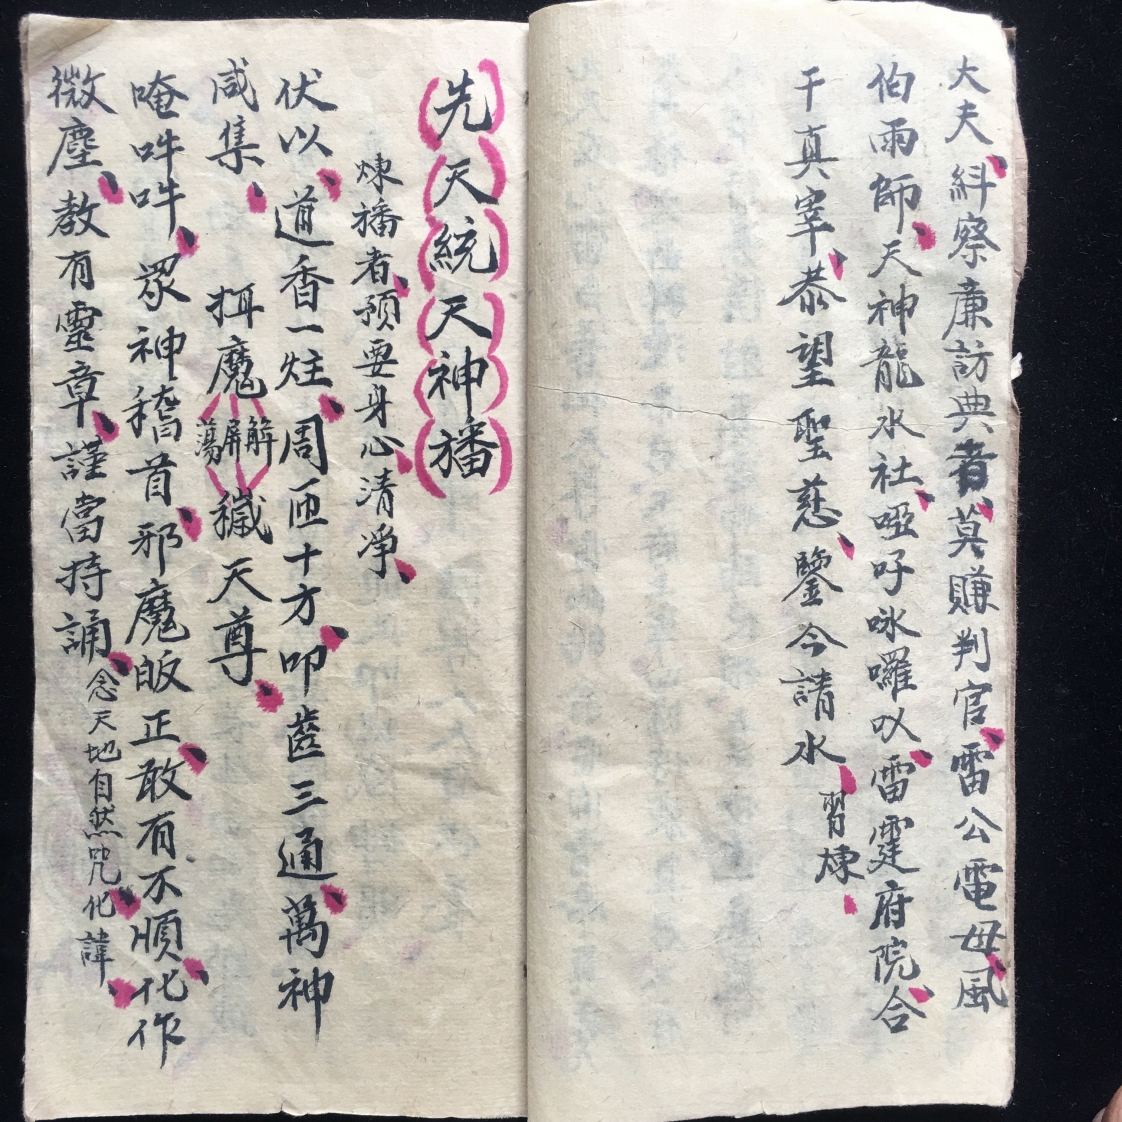 大夫糾察廉訪典者莫賺判官雷公電母風
伯雨師天神龍水社啞吁㖡囉㕥雷霆府院合
干真宰恭望聖慈鑒今請水
習煉
先天統天神播
煉播者預要身心清凈
伏以道香一炷周匝十方叩齒三通萬神
咸集
挕魔解屏蕩穢天尊
唵吽吽眾神稽首邪魔皈正敢有不順化作
微塵教有靈章謹當持誦念天地自然咒化諱